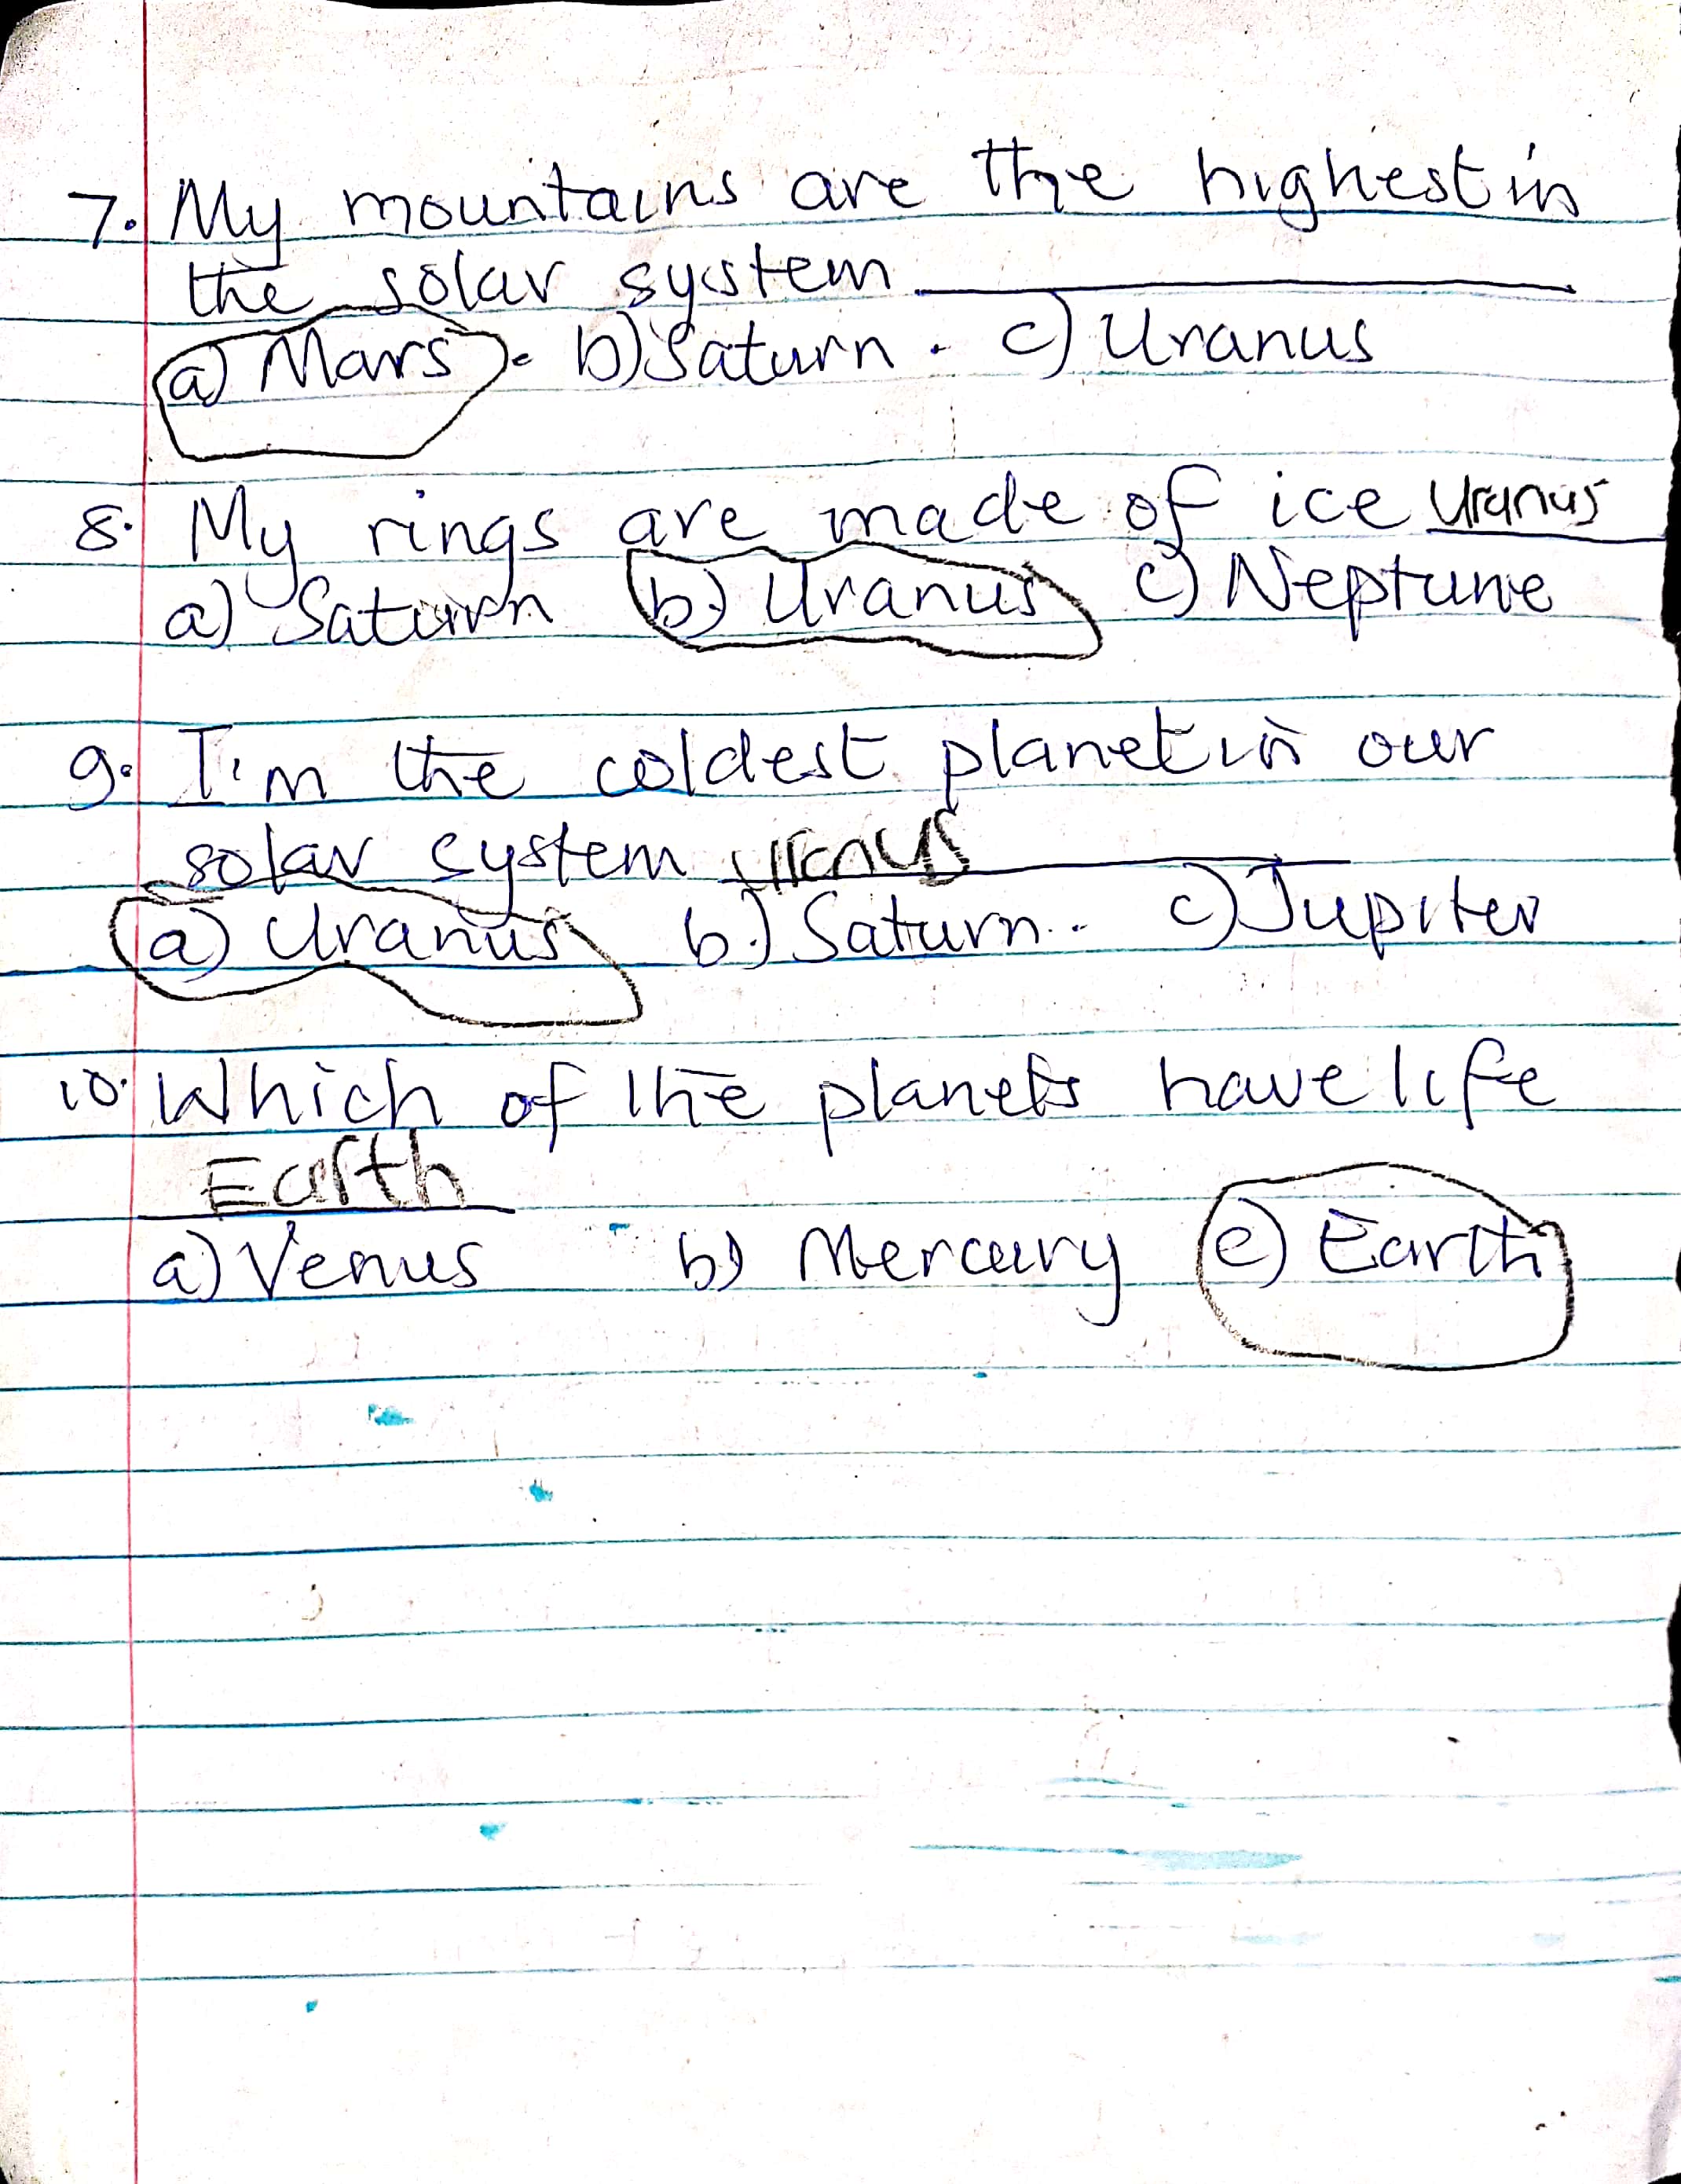 7. My mountains are the highest in
the solar system
a) Mars. b) Saturn. c) Uranus
8. My rings are made of ice Uranus
a) Saturn b) Uranus c) Neptune
9. I'm the coldest planet in our
solar system uranus
a) Uranus b.) Saturn.. c) Jupiter
10. Which of the planets have life
Earth
a) Venus b) Mercury c) Earth